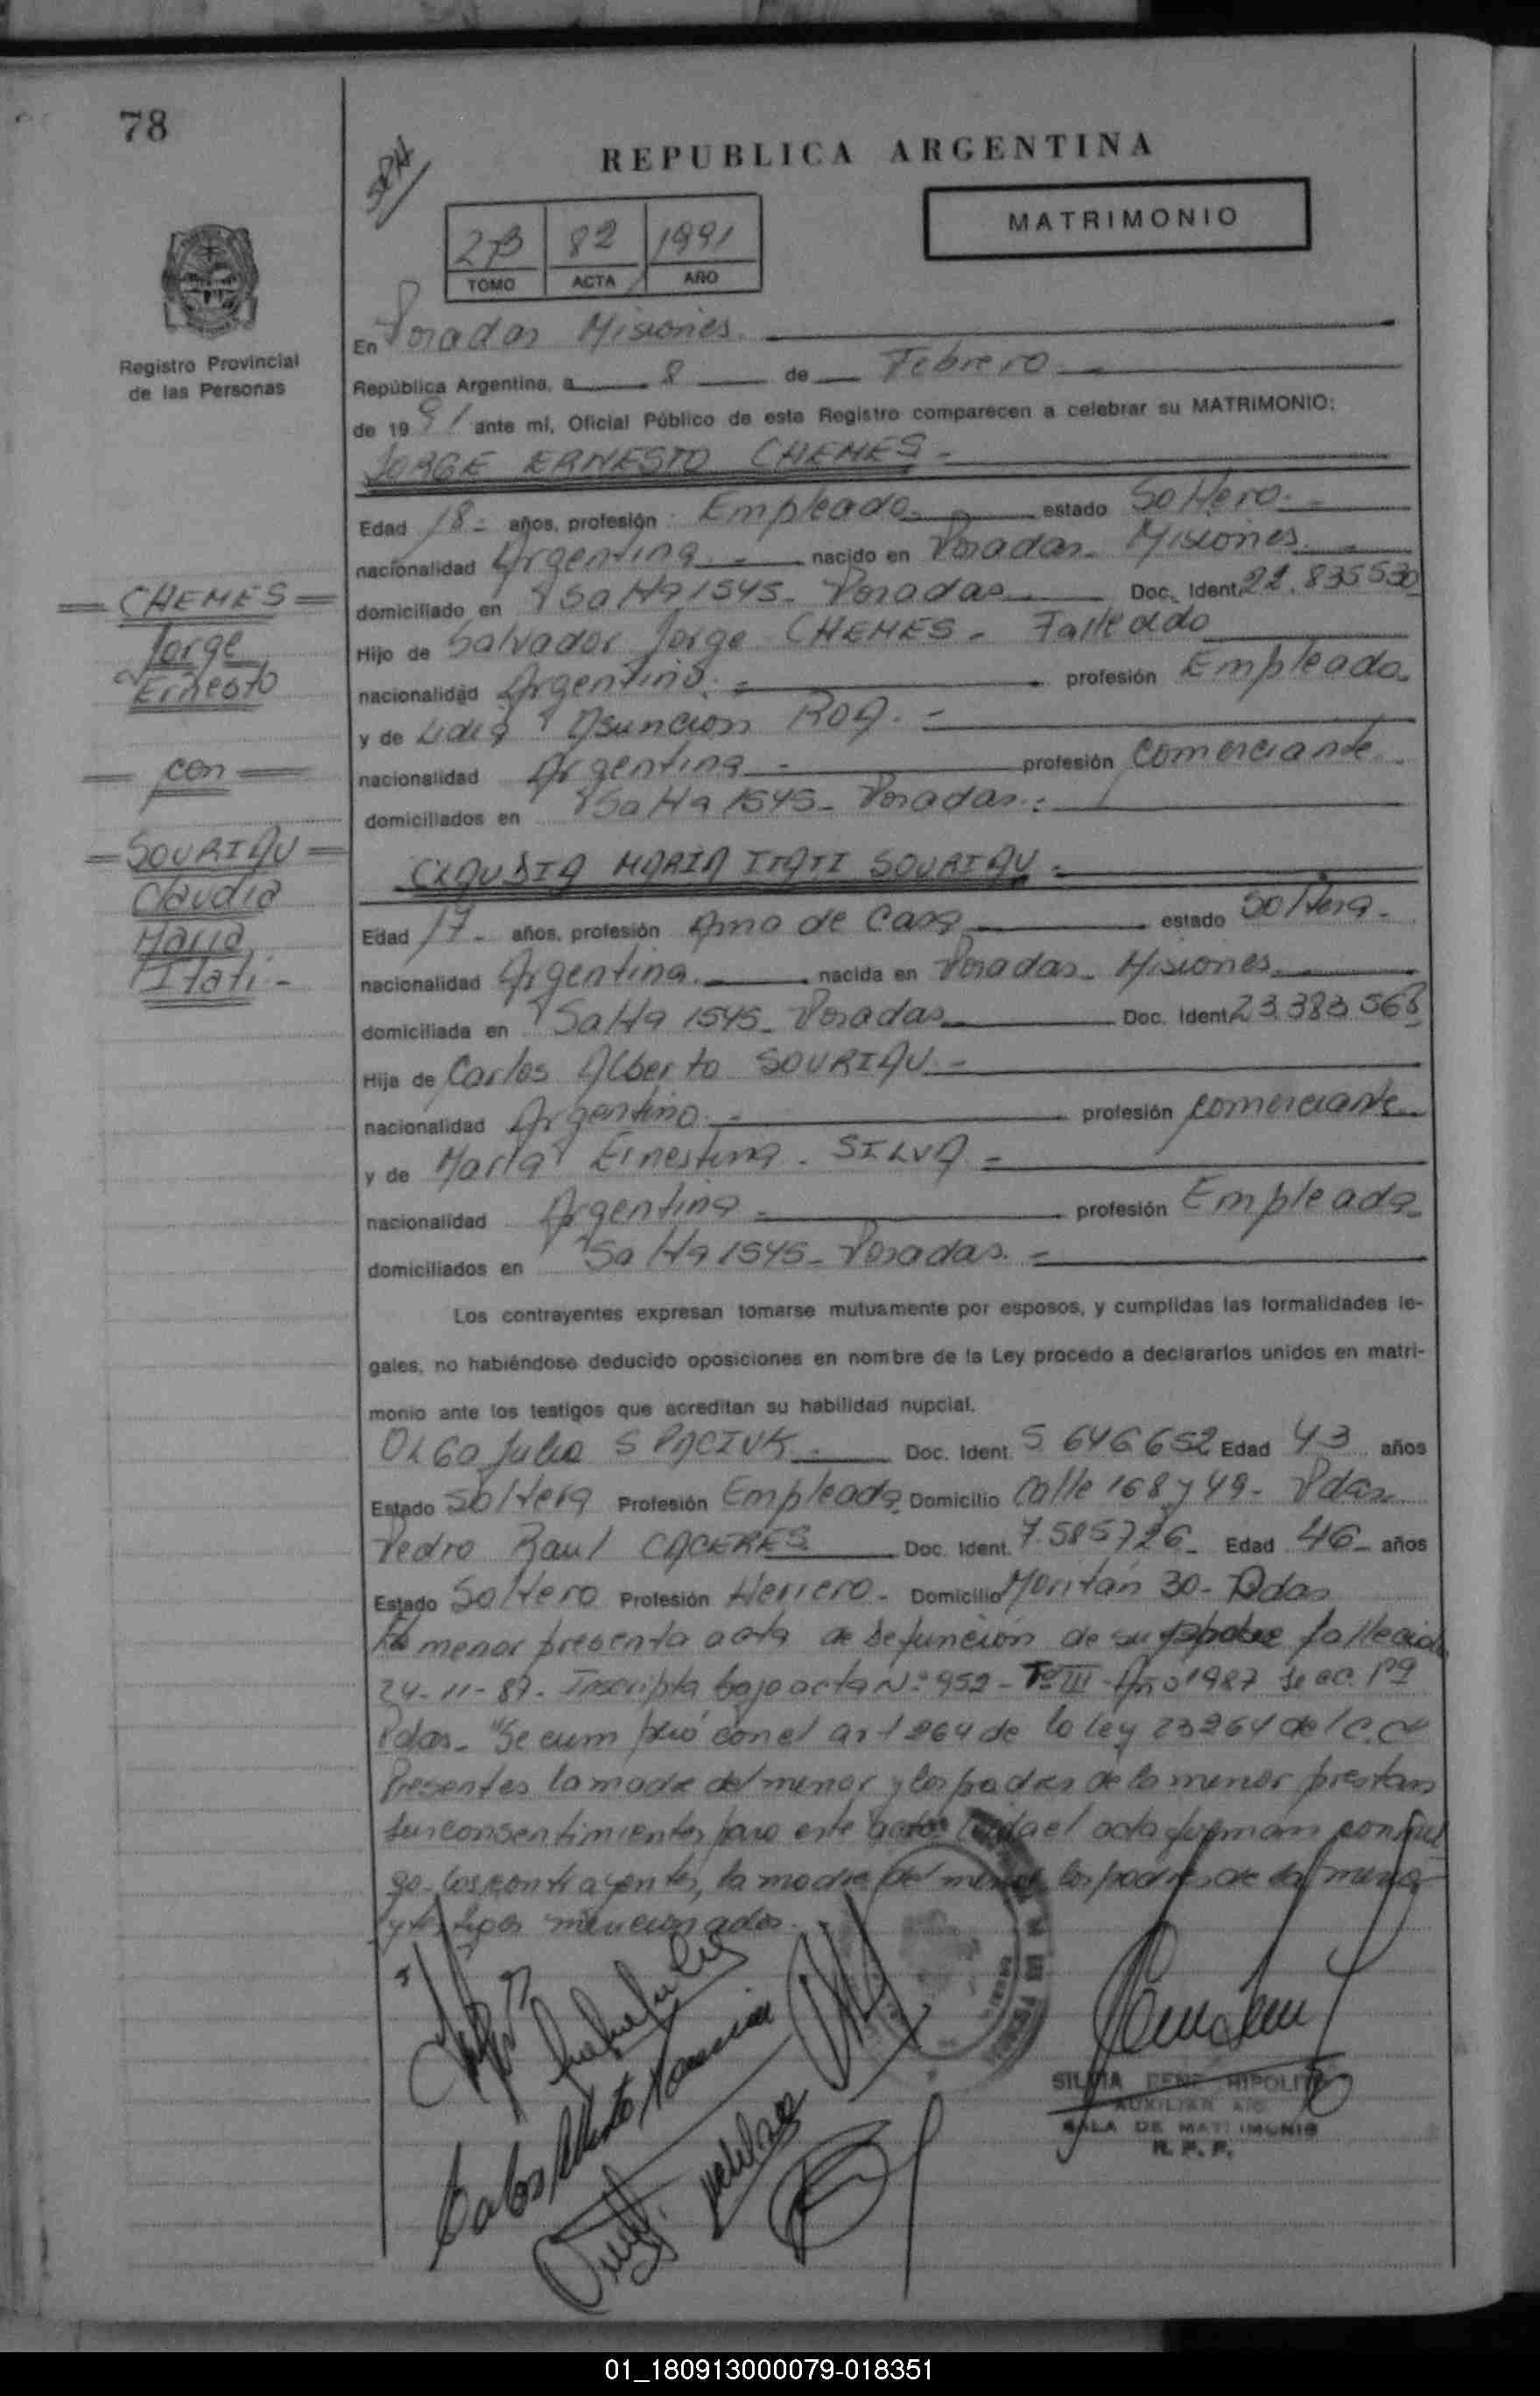 78
REPUBLICA ARGENTINA
MATRIMONIO
82 1991
TOMO ACTA AÑO
Registro Provincial
de las Personas
En Posadas Misiones.
República Argentina, a 8 de Febrero
de 1991 ante mí, Oficial Público de este Registro comparecen a celebrar su MATRIMONIO:
JORGE ERNESTO CHEMES -
Edad 18 - años, profesión Empleado estado Soltero -
nacionalidad Argentina - nacido en Posadas - Misiones
domiciliado en Salta 1545 - Posadas Doc. Ident. 22.835530
Hijo de Salvador Jorge CHEMES - Fallecido
nacionalidad Argentino. - profesión Empleado -
y de Lidia Asuncion ROA. -
nacionalidad Argentina - profesión Comerciante
domiciliados en Salta 1545 - Posadas. -
CLAUDIA MARIA ITATI SOURIAU -
Edad 17 - años, profesión Ama de Casa estado Soltera -
nacionalidad Argentina. nacida en Posadas - Misiones
domiciliada en Salta 1545 - Posadas Doc. Ident. 23.383.568
Hija de Carlos Alberto SOURIAU -
nacionalidad Argentino - profesión comerciante
y de Maria Ernestina. SILVA -
nacionalidad Argentina - profesión Empleada
domiciliados en Salta 1545 - Posadas. -
CHEMES
Jorge
Ernesto
con
SOURIAU
Claudia
Maria
Itati -
Los contrayentes expresan tomarse mutuamente por esposos, y cumplidas las formalidades le-
gales, no habiéndose deducido oposiciones en nombre de la Ley procedo a declararlos unidos en matri-
monio ante los testigos que acreditan su habilidad nupcial.
OLGA Julia SPACIUK - Doc. Ident. 5.646.652 Edad 43 años
Estado Soltera Profesión Empleada Domicilio Calle 168 y 49 - Pdas
Pedro Raul CACERES Doc. Ident. 7.585726 - Edad 46 - años
Estado Soltero Profesión Herrero - Domicilio 30 - Pdas
El menor presenta acta de defunción de su padre fallecido
24-11-87. Inscripta bajo acta Nº 952 - Tº III - Año 1987 Sec. 1ª
Pdas - "Se cumplió con el art 264 de la ley 23264 del C.C
Presentes la madre del menor y los padres de la menor prestan
sus consentimientos para este acto. Leida el acta firman conmi
go los contrayentes, la madre del menor los padres de la menor
y testigos mencionados.
SILVIA RENE HIPOLITO
AUXILIAR
SALA DE MATRIMONIO
R. P. P.
01_180913000079-018351